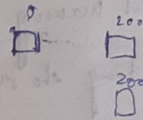 0 200
200